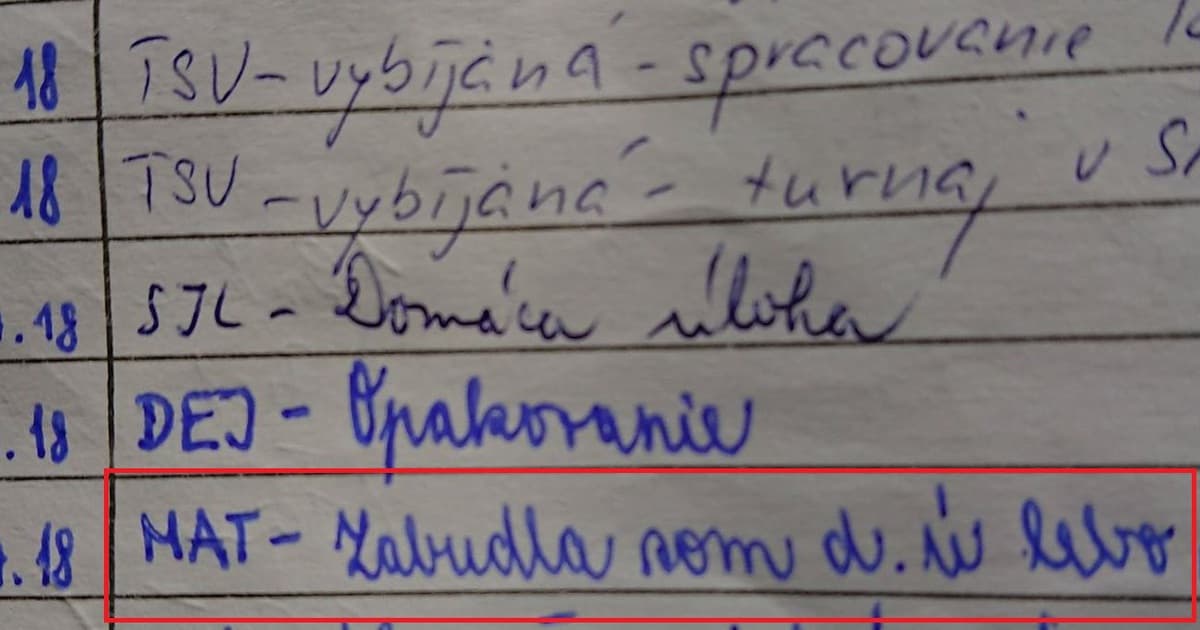 18 TSV - vybíjaná - spracovanie
18 TSV - vybíjaná - turnaj v
.18 SJL - Domáca úloha
.18 DEJ - Opakovanie
.18 MAT - Zabudla som d. ú lebo